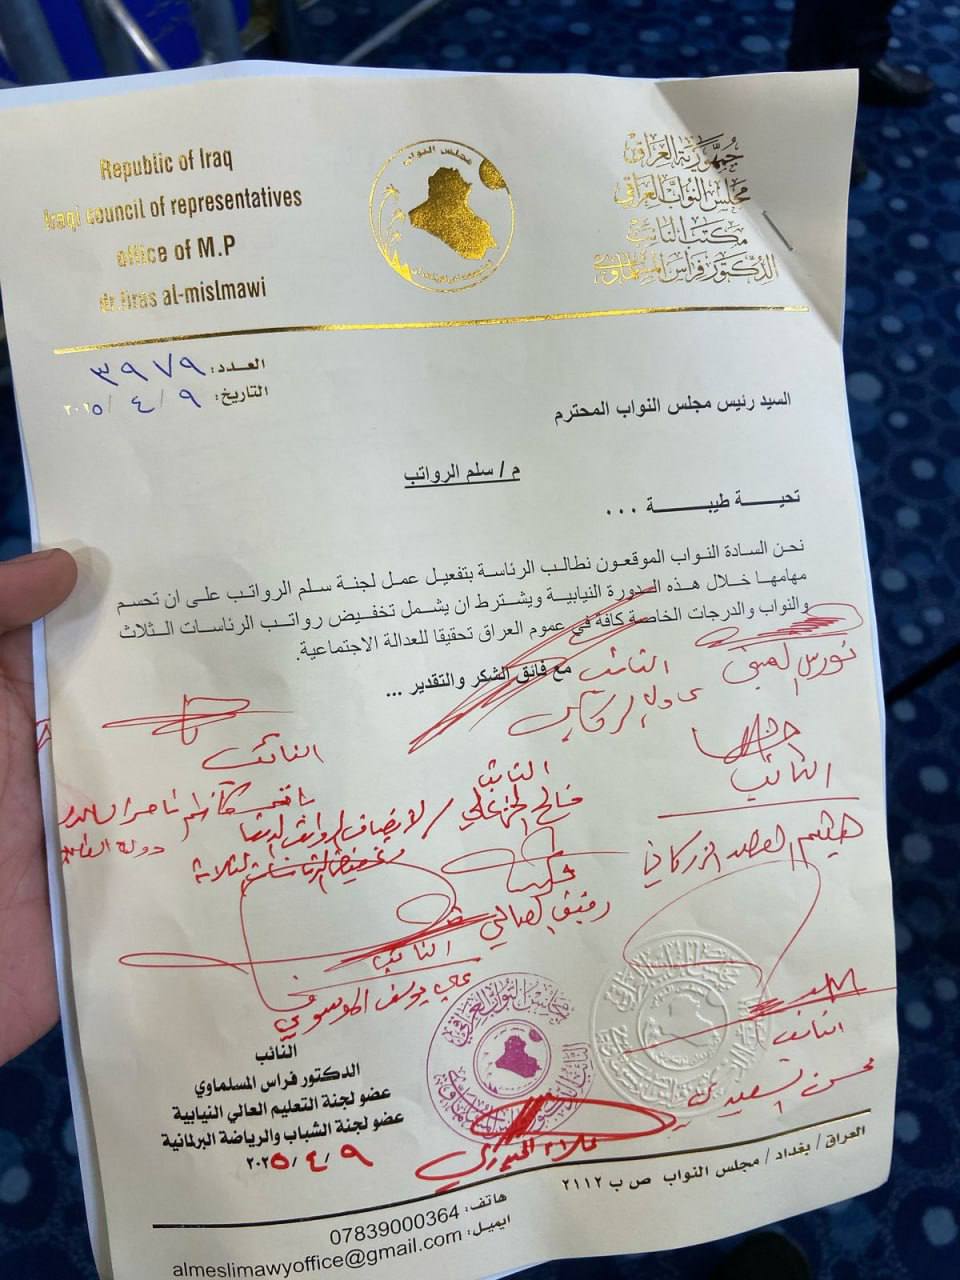 Republic of Iraq
Iraqi council of representatives
office of M.P
dr.firas al-mislmawi
مجلس النواب
جمهورية العراق
مجلس النواب العراقي
مكتب النائب
الدكتور فراس المسلماوي
العدد: ٣٩٧٩
التاريخ: ٩ / ٤ / ٢٠٢٥
السيد رئيس مجلس النواب المحترم
م / سلم الرواتب
تحية طيبة ...
نحن السادة النواب الموقعون نطالب الرئاسة بتفعيل عمل لجنة سلم الرواتب على ان تحسم
مهامها خلال هذه الدورة النيابية ويشترط ان يشمل تخفيض رواتب الرئاسات الثلاث
والنواب والدرجات الخاصة كافة في عموم العراق تحقيقا للعدالة الاجتماعية.
مع فائق الشكر والتقدير ...
النائب
النائب
النائب
النائب
فالح الخزعلي
هيثم الزركاني
رفيق الصالحي
النائب
علي يوسف الموسوي
النائب
محسن السعيدي
علاء الحيدري
النائب
الدكتور فراس المسلماوي
عضو لجنة التعليم العالي النيابية
عضو لجنة الشباب والرياضة البرلمانية
٩ / ٤ / ٢٠٢٥
العراق / بغداد / مجلس النواب ص ب ٢١١٢
هاتف: 07839000364
ايميل: almeslimawyoffice@gmail.com